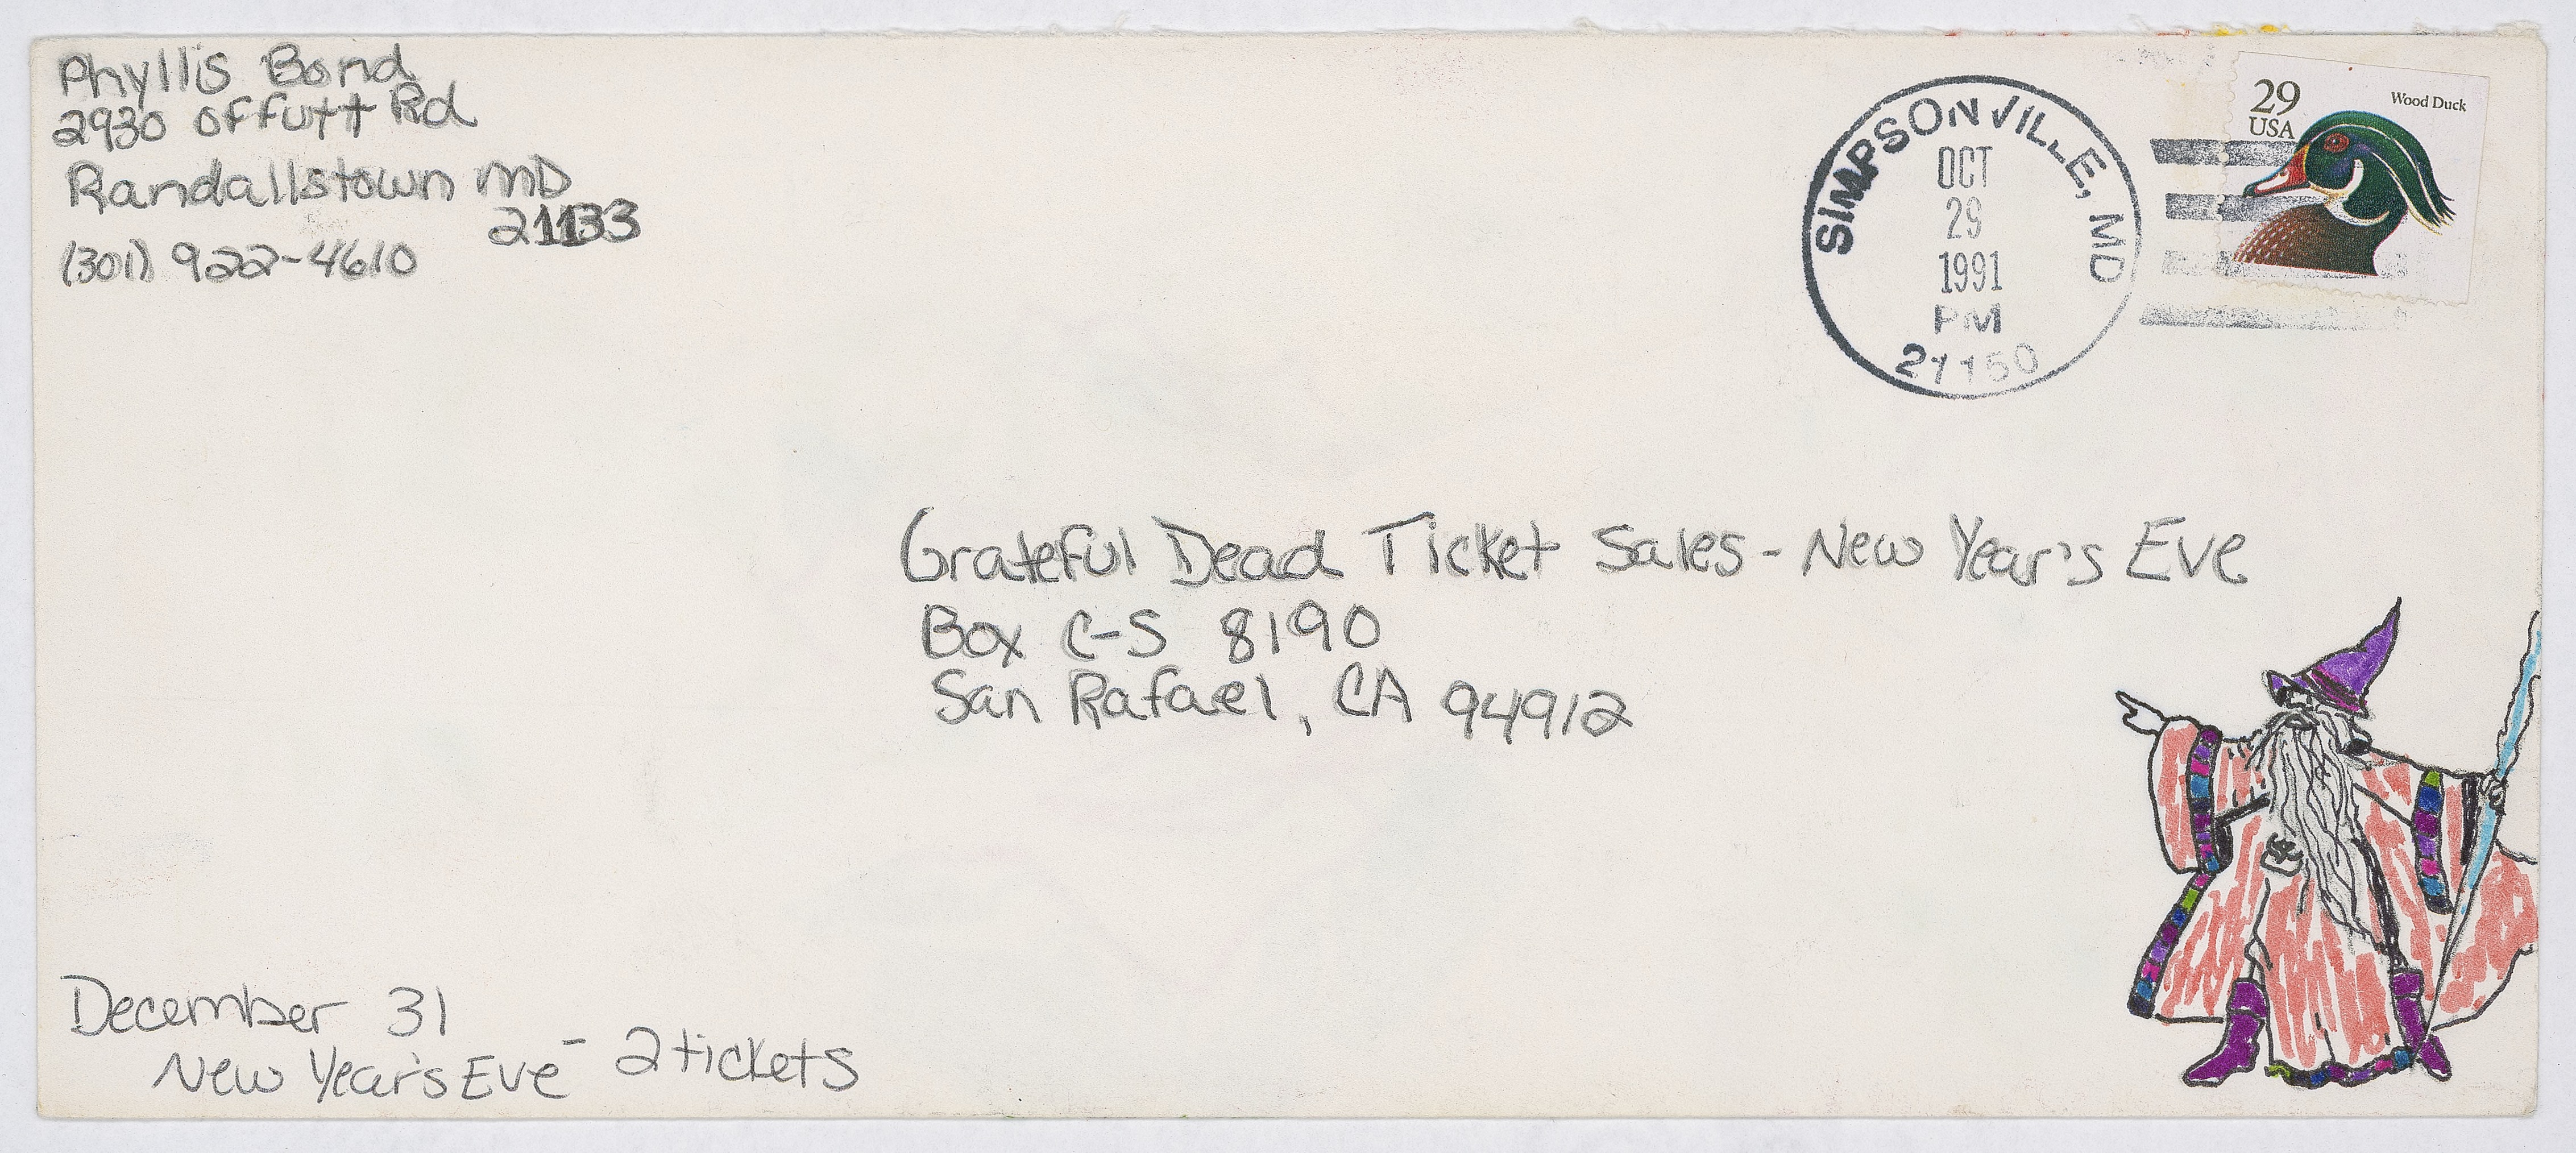 Phyllis Bond
2930 Offutt Rd
Randallstown MD
21133
(301) 922-4610
SIMPSONVILLE, MD
OCT
29
1991
PM
21150
29
USA
Wood Duck
Grateful Dead Ticket Sales - New Year's Eve
Box C-S 8190
San Rafael, CA 94912
December 31
New Year's Eve - 2 tickets